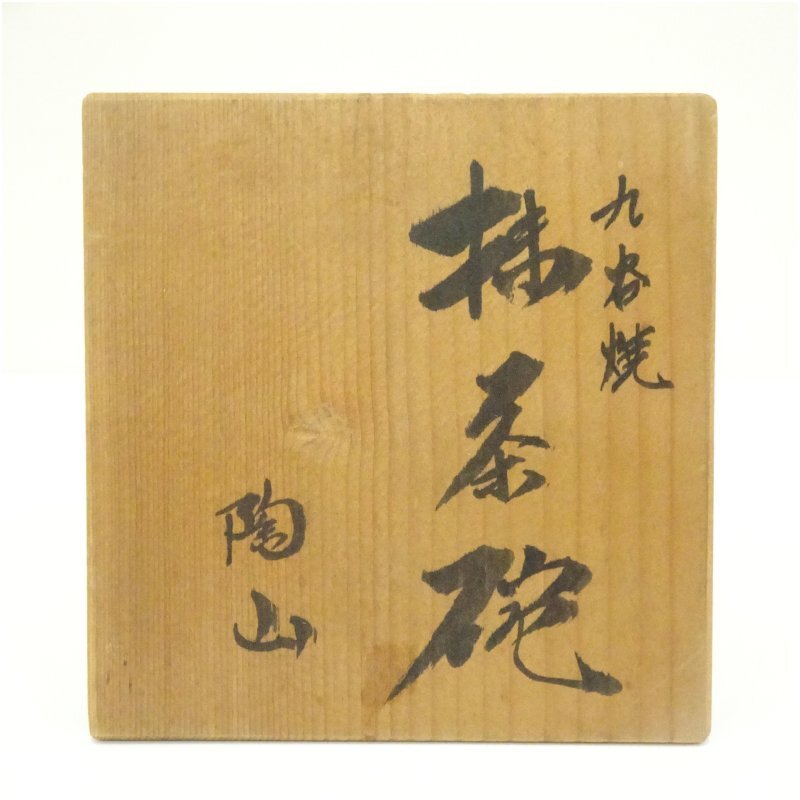 九谷焼
抹茶碗
陶山